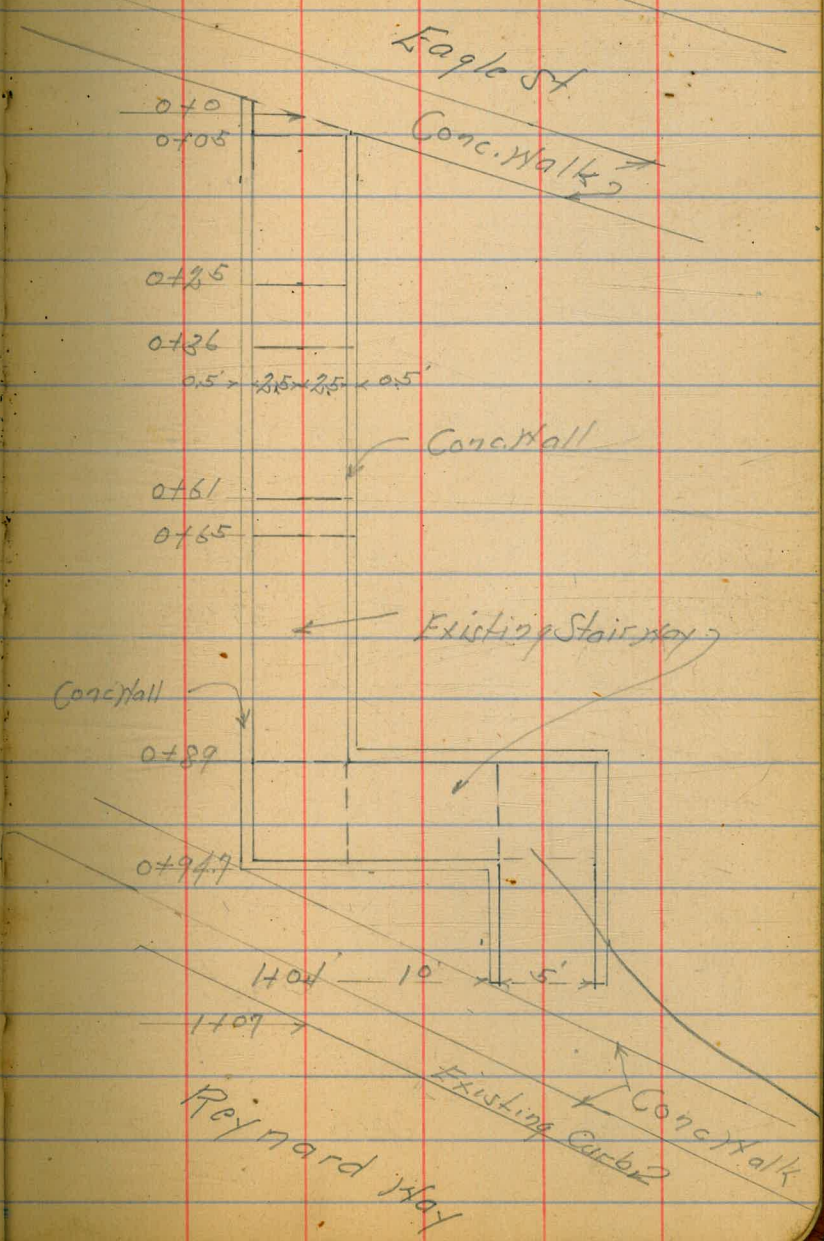 Eagle St.
Conc. Walk
0+0
0+05
0+25
0+36
0.5' 2.5 2.5 0.5'
Conc. Wall
0+61
0+65
Existing Stairway
Conc Wall
0+89
0+94.7
1+01' 10' 5'
1+07
Existing Curb
Conc. Walk
Reynard Way